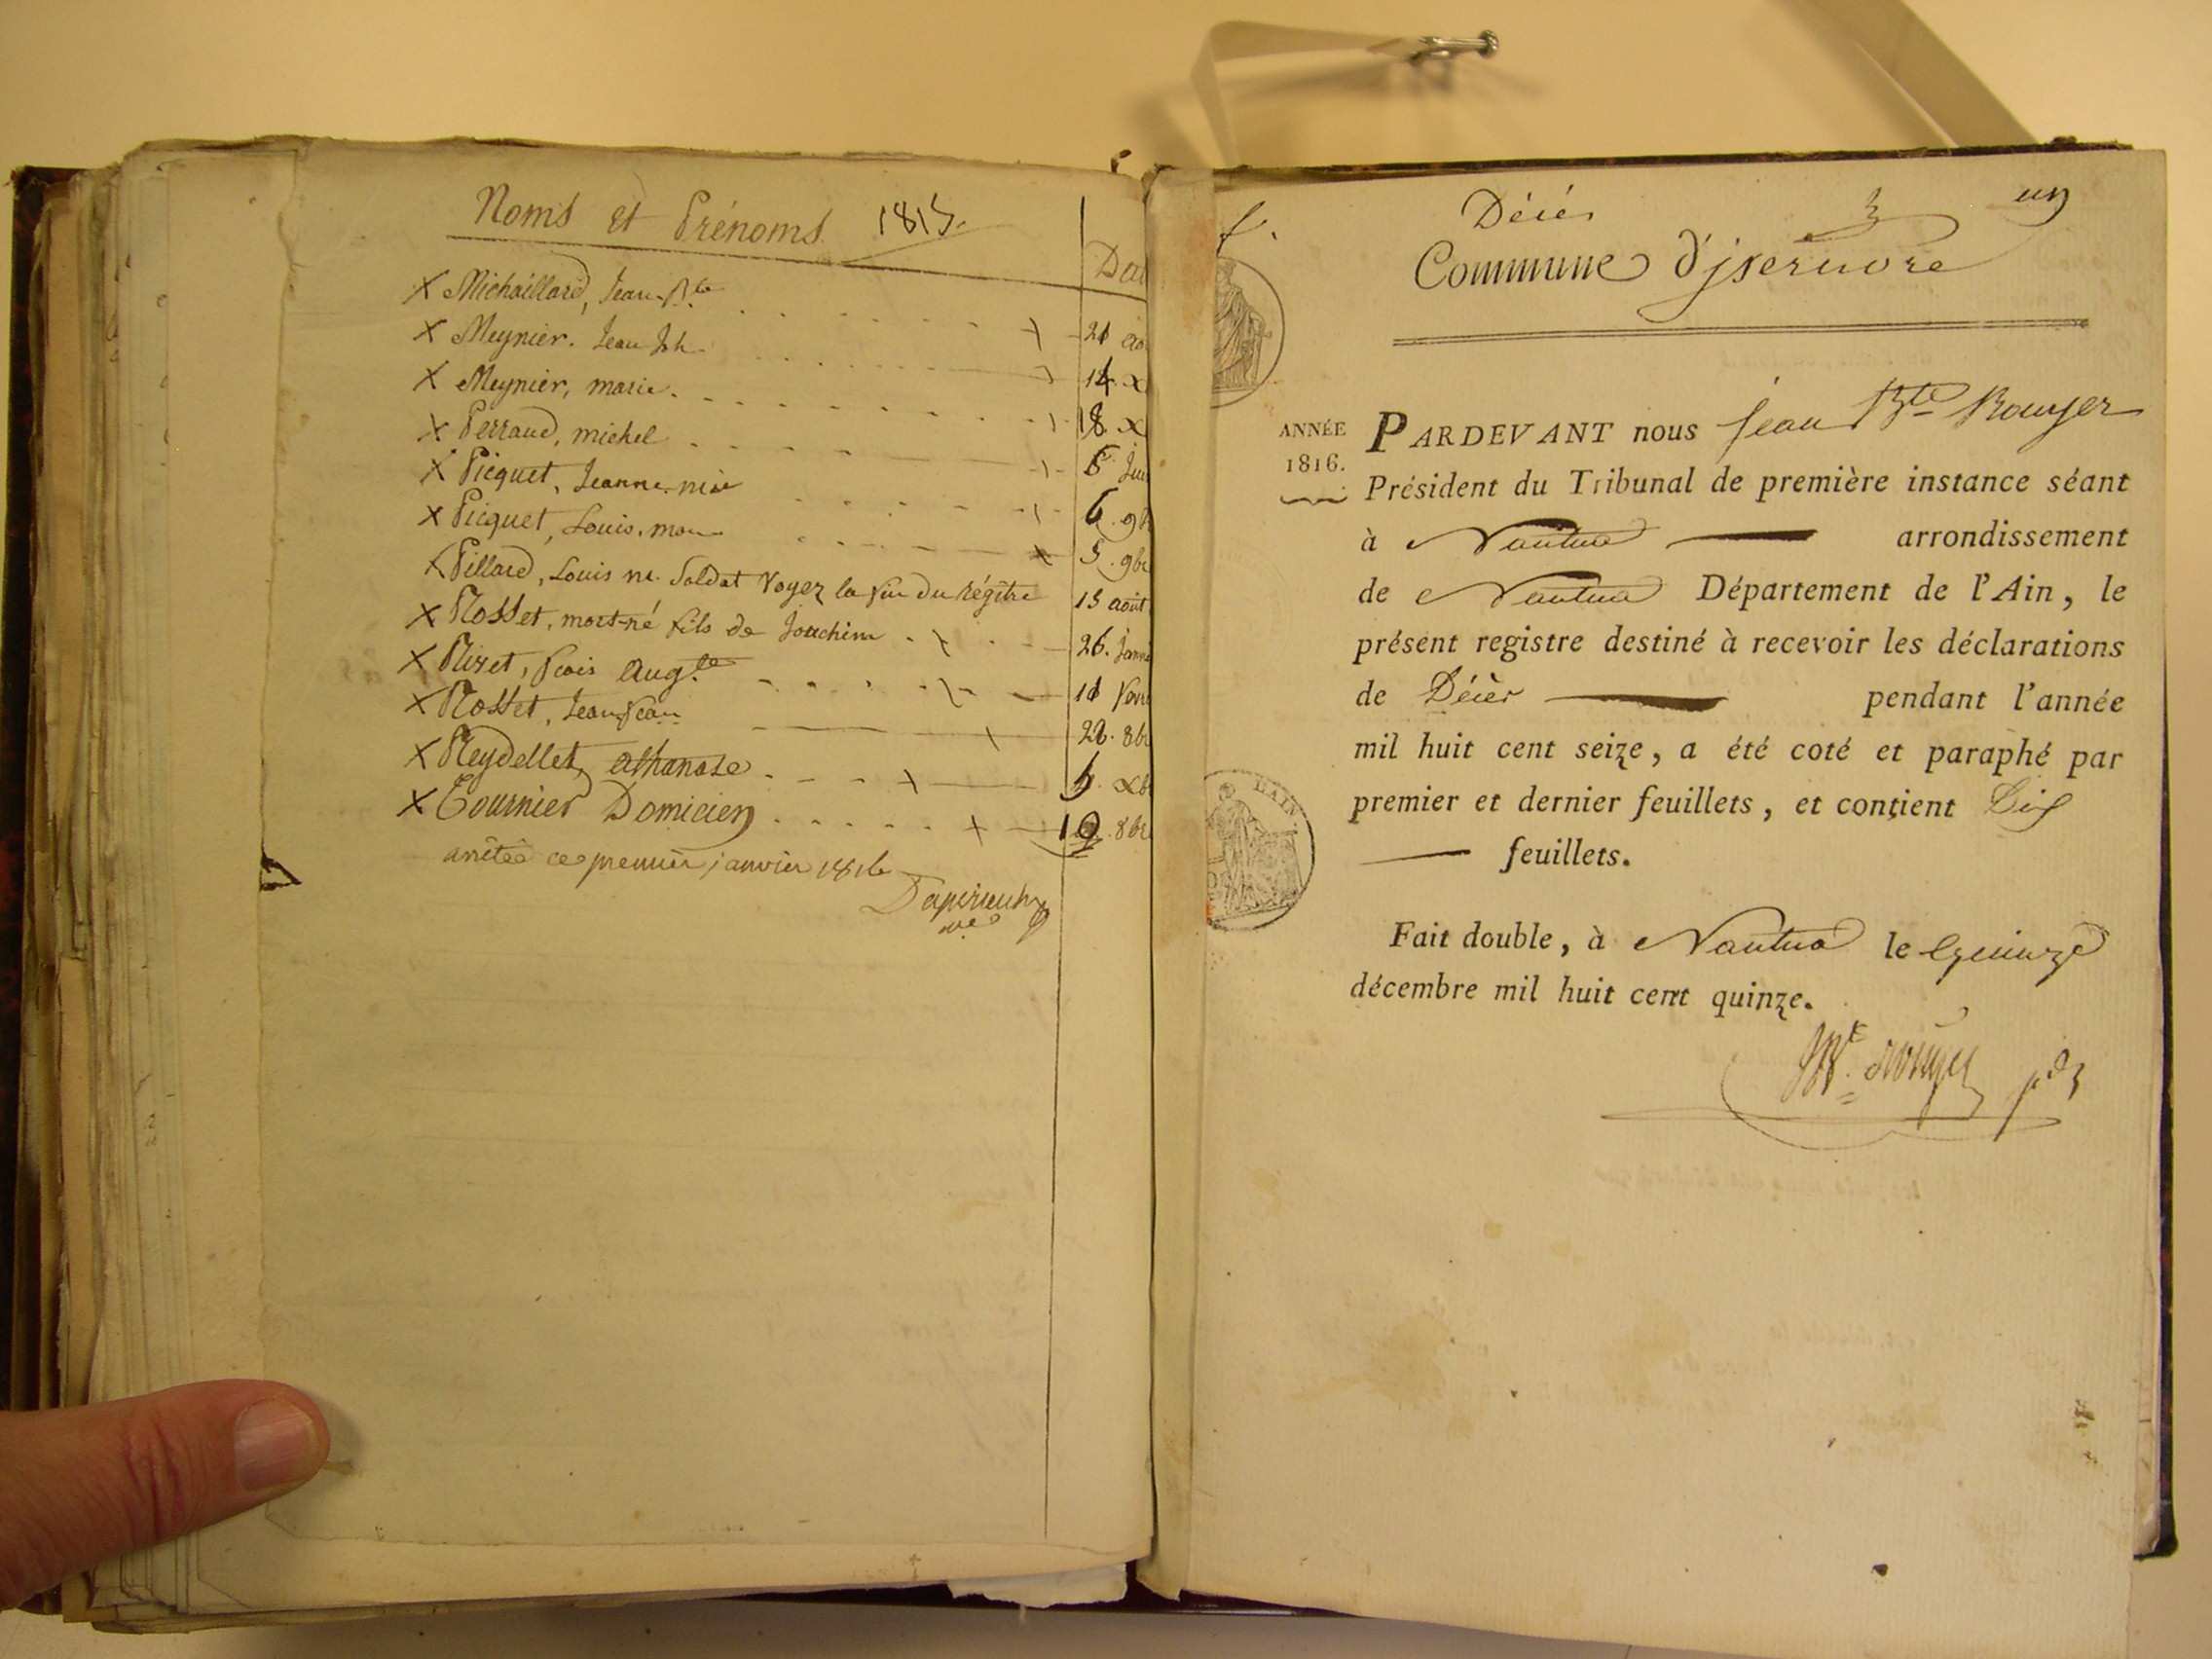 Noms et Prénoms 1815.
Da
X Michaillard, Jean-Bte 21 ao
X Meynier. Jean Jh. 14. x
X Meynier, marie. 18. x
X Perraud, michel 6 Jui
X Picquet, Jeanne. mie 6. 9b
X Picquet, Louis. 5. 9br
X Pillard, Louis m. Soldat Voyez la fin du régitre 15 août
X Rosset, mort-né fils de Joachim 26. Janvi
X Rizet, fcois Aug.te 11
X Rosset, Jean 22. 8br
X Reydellet, athanase xb
X Tournier Domicien 10. 8br
arrêtée ce premier janvier 1816
Décès un
Commune d'jsernore
ANNÉE
1816.
PARDEVANT nous Jean Bte Rouyer
Président du Tribunal de première instance séant
à Nantua arrondissement
de Nantua Département de l'Ain, le
présent registre destiné à recevoir les déclarations
de Décès pendant l'année
mil huit cent seize, a été coté et paraphé par
premier et dernier feuillets, et contient Dix
feuillets.
Fait double, à Nantua le quinze
décembre mil huit cent quinze.
Bte Rouyer pdt
L'AIN